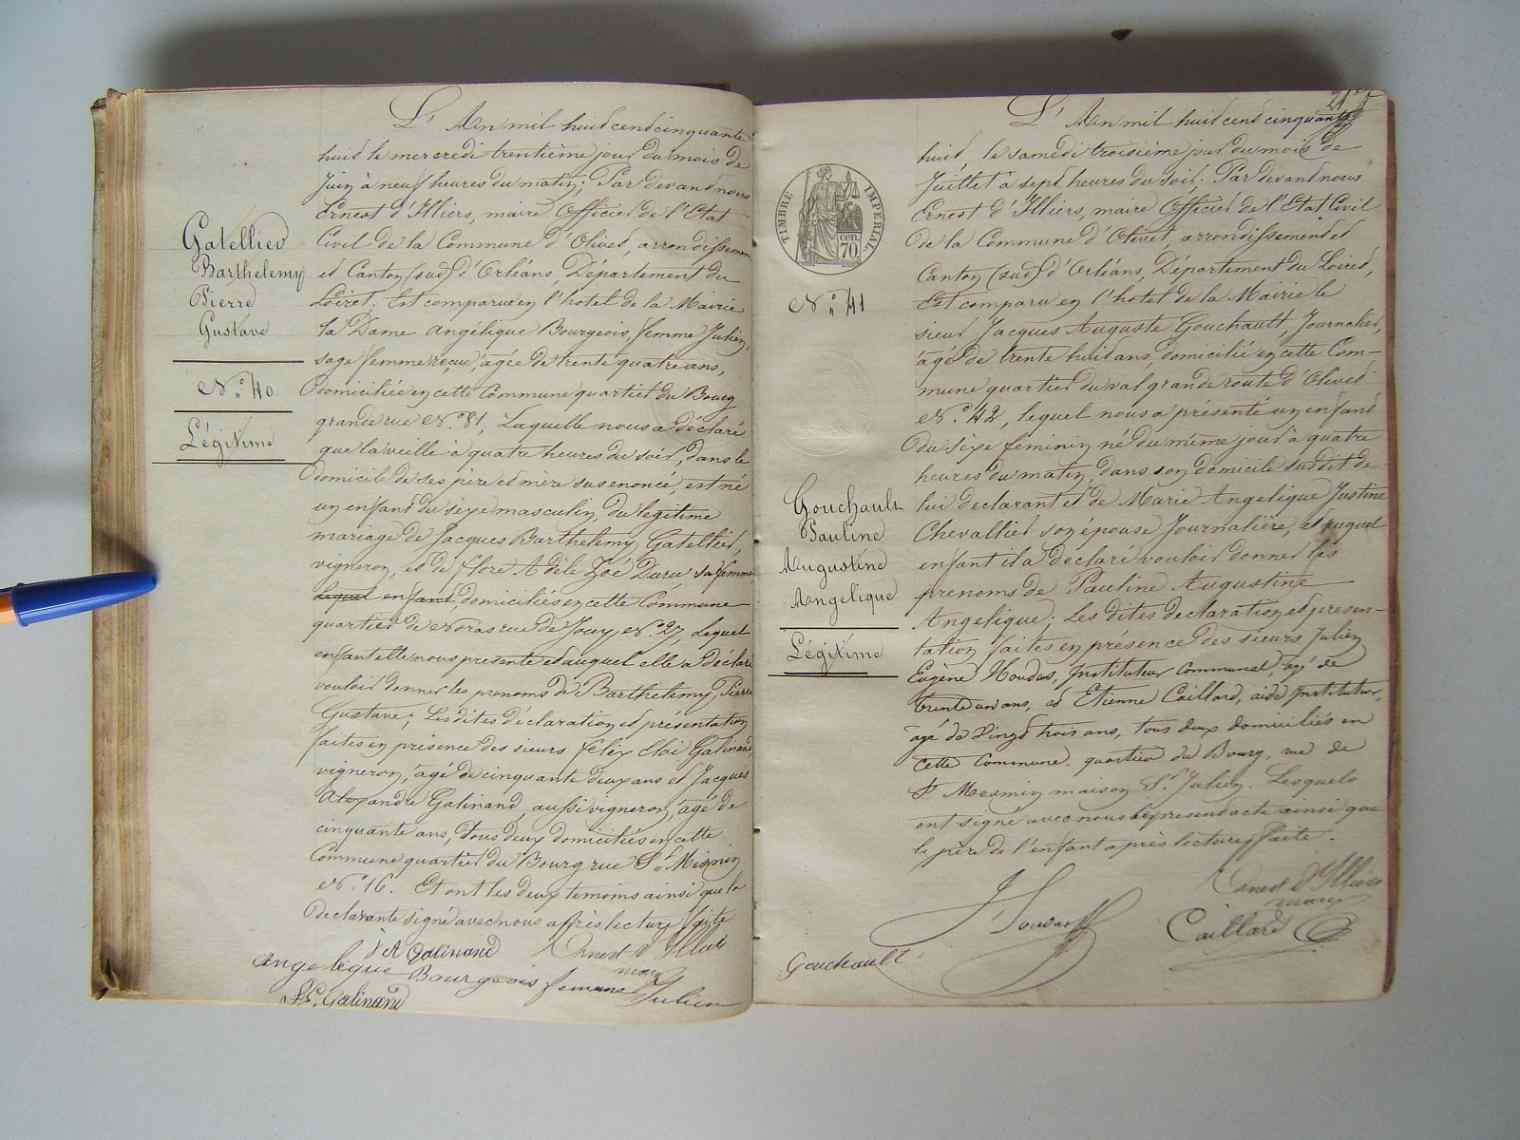 L'An mil huit cent cinquante
huit le mercredi trentième jour du mois de
Juin à neuf heures du matin; Par devant nous
Ernest d'Illiers, maire Officier de l'Etat
Civil de la Commune d'Olivet, arrondissement
et Canton (sud) d'Orléans, Département du
Loiret; Est comparue en l'hotel de la Mairie
la Dame Angélique Bourgeois, femme Julien,
sage femme reçue, agée de trente quatre ans,
domiciliée en cette Commune quartier du Bourg
grande rue N.° 81, Laquelle nous a déclaré
que la veille à quatre heures du soir, dans le
domicile de ses père et mère susenoncé, est né
un enfant du sexe masculin, du légitime
mariage de Jacques Barthelemy Gatellier,
vigneron, et de Flore Adèle Zoé Daru sa femme
lequel enfant, domiciliés en cette Commune
quartier de Noras rue de Jouy N.° 27 Lequel
enfant elle nous presente et auquel elle a déclaré
vouloir donner les prenoms de Barthelemy Pierre
Gustave; Les dites déclaration et présentation
faites en présence des sieurs Félix Eloi Galinand
vigneron, agé de cinquante deux ans et Jacques
Alexandre Galinand, aussi vigneron, agé de
cinquante ans, tous deux domiciliés en cette
Commune quartier du Bourg rue St Mesmin
N.° 16. Et ont les deux temoins ainsi que la
declarante signé avec nous après lecture faite
Gatellier
Barthelemy
Pierre
Gustave
N.° 40
Légitime
J A Galinand
Ernest d'Illiers
maire
Angelique Bourgeois femme Julien
F.E. Galinand
21
L'An mil huit cent cinquante
huit, le samedi troisième jour du mois de
Juillet à sept heures du soir; Par devant nous
Ernest d'Illiers, maire Officier de l'Etat Civil
de la Commune d'Olivet, arrondissement et
Canton (sud) d'Orléans, Département du Loiret,
Est comparu en l'hotel de la Mairie le
sieur Jacques Auguste Gouchault, Journalier,
agé de trente huit ans, domicilié en cette Com-
mune quartier du val grande route d'Olivet
N.° 42, lequel nous a présenté un enfant
du sexe féminin né du même jour à quatre
heures du matin, dans son domicile susdit de
lui declarant et de Marie Angelique Justine
Chevallier son épouse Journalière, et auquel
enfant il a declaré vouloir donner les
prenoms de Pauline Augustine
Angelique; Les dites declaration et presen-
tation faites en présence des sieurs Julien
Eugène Houdas, Instituteur communal, agé de
trente un ans, et Etienne Caillard, aide Instituteur,
agé de Vingt trois ans, tous deux domiciliés en
cette Commune, quartier du Bourg, rue de
St Mesmin maison St Julien. Lesquels
ont signé avec nous le present acte ainsi que
le père de l'enfant après lecture faite.
TIMBRE IMPÉRIAL
cen. 70.
N.° 41
Gouchault
Pauline
Augustine
Angelique
Légitime
J Houdas
Ernest d'Illiers
maire
Caillard
Gouchault